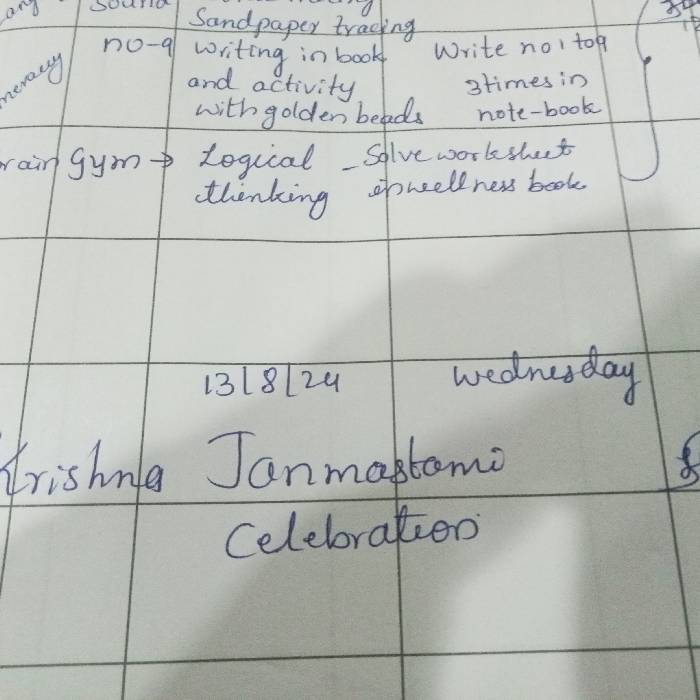 Sound
Sandpaper tracing
no-9 writing in book Write no 1 to 9
and activity 3 times in
with golden beads note-book
Gym → Logical - Solve worksheet
thinking in wellness book
13/8/24 Wednesday
Krishna Janmastami
Celebration